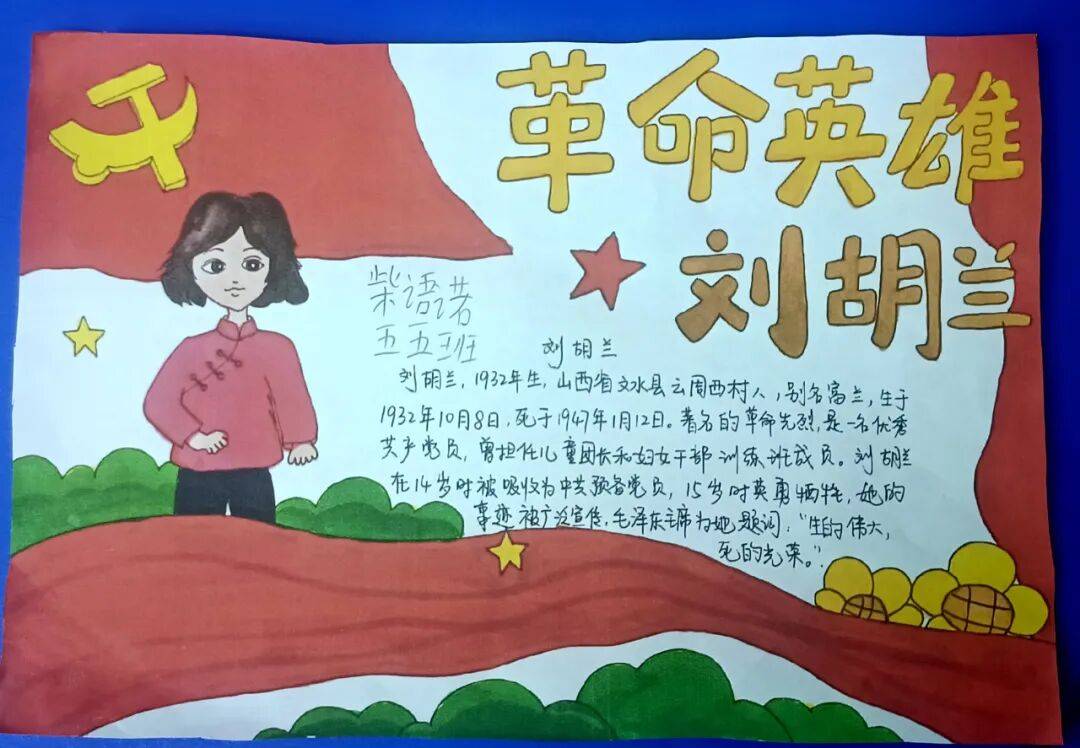 革命英雄
刘胡兰
柴语诺
五五班
刘胡兰
刘胡兰，1932年生，山西省文水县云周西村人，别名富兰，生于
1932年10月8日，死于1947年1月12日。著名的革命先烈，是一名优秀
共产党员，曾担任儿童团长和妇女干部训练班成员。刘胡兰
在14岁时被吸收为中共预备党员，15岁时英勇牺牲，她的
事迹被广泛宣传，毛泽东主席为她题词：“生的伟大，
死的光荣。”